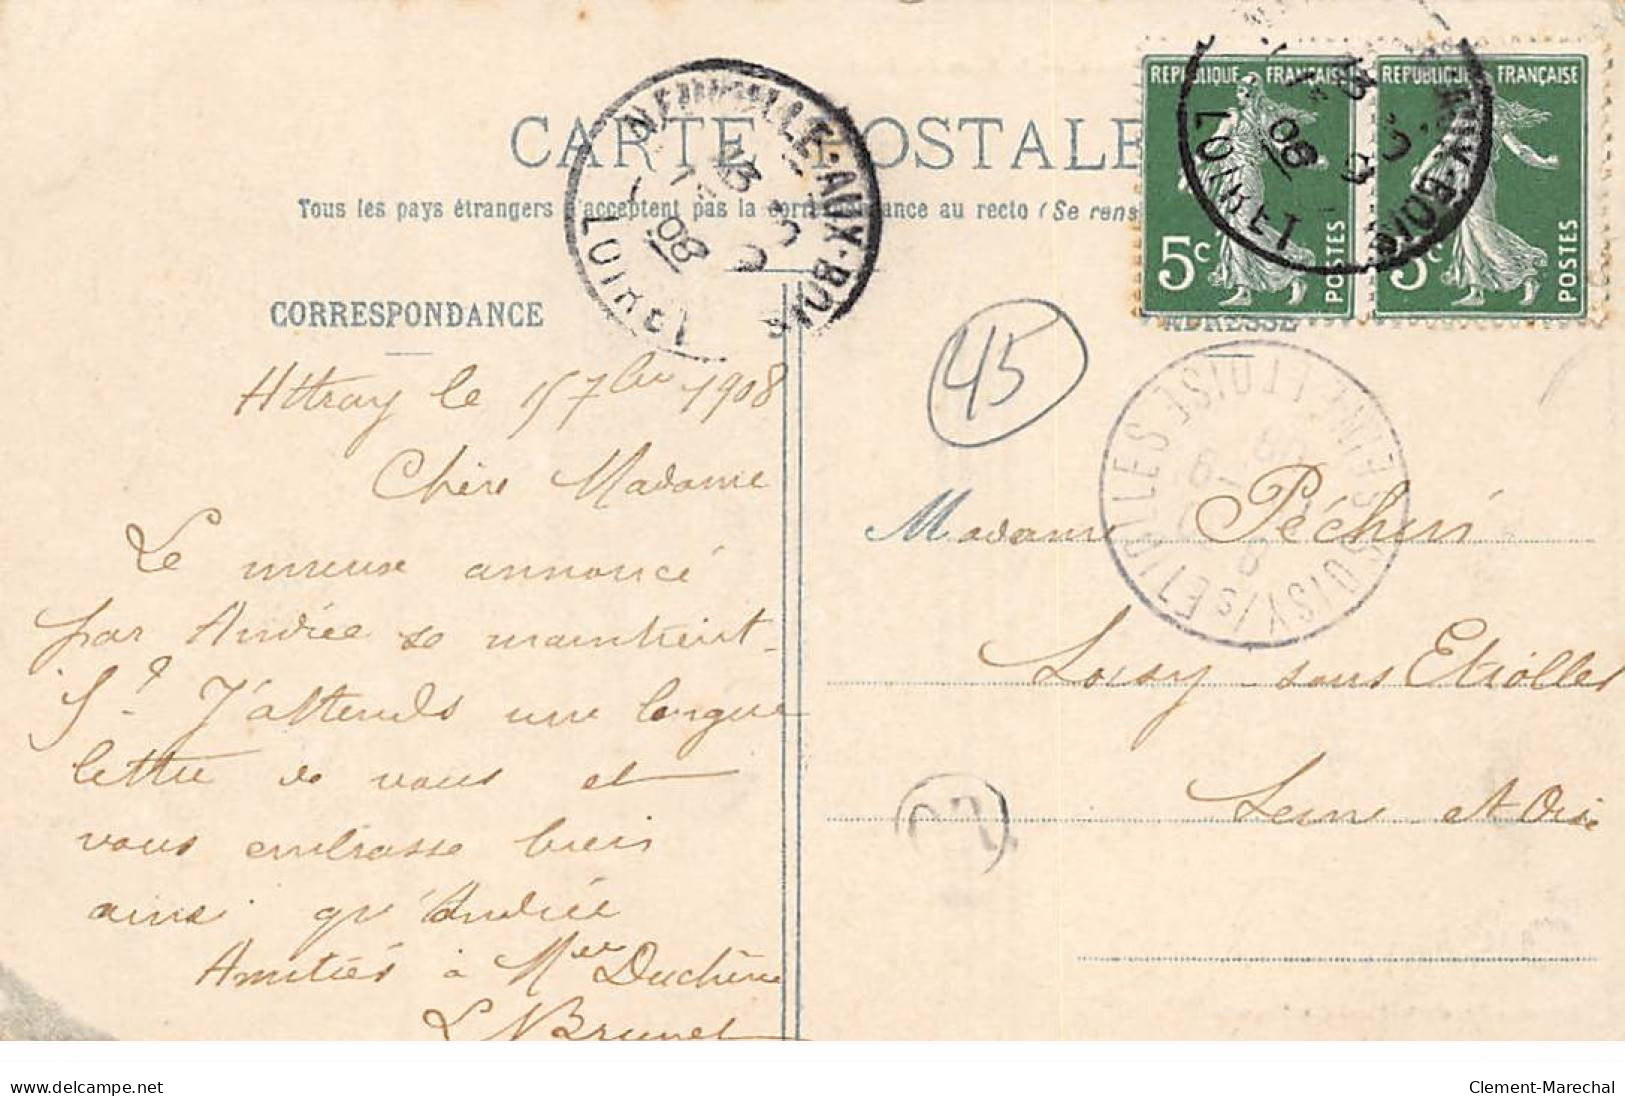 CARTE POSTALE
Tous les pays étrangers n'acceptent pas la correspondance au recto (Se rens
CORRESPONDANCE
ADRESSE
REPUBLIQUE FRANÇAISE
5c
POSTES
REPUBLIQUE FRANÇAISE
5c
POSTES
NEUVILLE-AUX-BOIS
LOIRET
08
AUX-BOIS
LOIRET
08
SOISY/S ETIOLLES SEINE ET OISE
45
OR
Attray le 15 7bre 1908
Chère Madame
Le mieux annoncé
par Andrée se maintient.
J'attends une longue
lettre de vous et
vous embrasse bien
ainsi qu'Andrée
Amitiés à Mer Duchêne
L Brunet
Madame Péchiné
Soisy sous Etiolles
Seine et Oise
www.delcampe.net
Clement-Marechal